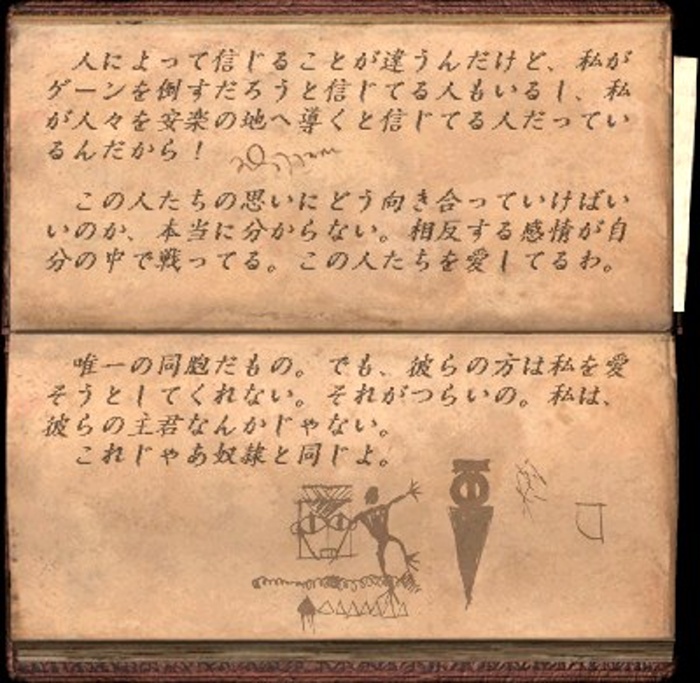 人によって信じることが違うんだけど、私が
ゲーンを倒すだろうと信じてる人もいるし、私
が人々を安楽の地へ導くと信じてる人だってい
るんだから！
この人たちの思いにどう向き合っていけばい
いのか、本当に分からない。相反する感情が自
分の中で戦ってる。この人たちを愛してるわ。
唯一の同胞だもの。でも、彼らの方は私を愛
そうとしてくれない。それがつらいの。私は、
彼らの主君なんかじゃない。
これじゃあ奴隷と同じよ。